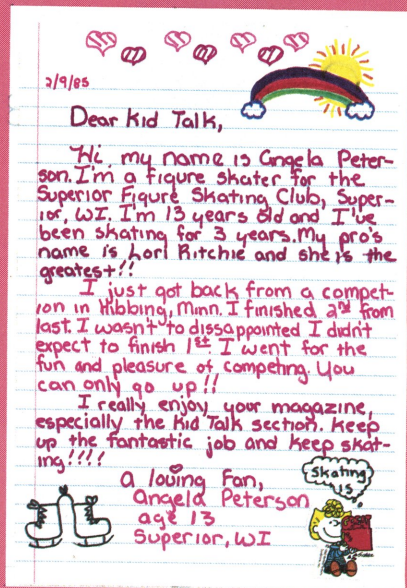 2/9/85
Dear Kid Talk,
Hi, my name is Angela Peter-
son. I'm a figure skater for the
Superior Figure Skating Club, Super-
ior, WI. I'm 13 years old and I've
been skating for 3 years. My pro's
name is Lori Ritchie and she is the
greatest!!
I just got back from a compet-
ion in Hibbing, Minn. I finished 2nd from
last. I wasn't to dissappointed I didn't
expect to finish 1st. I went for the
fun and pleasure of competing. You
can only go up!!
I really enjoy your magazine,
especially the Kid Talk section. Keep
up the fantastic job and keep skat-
ing!!!!
a loving fan,
Angela Peterson
age 13
Superior, WI
Skating
is